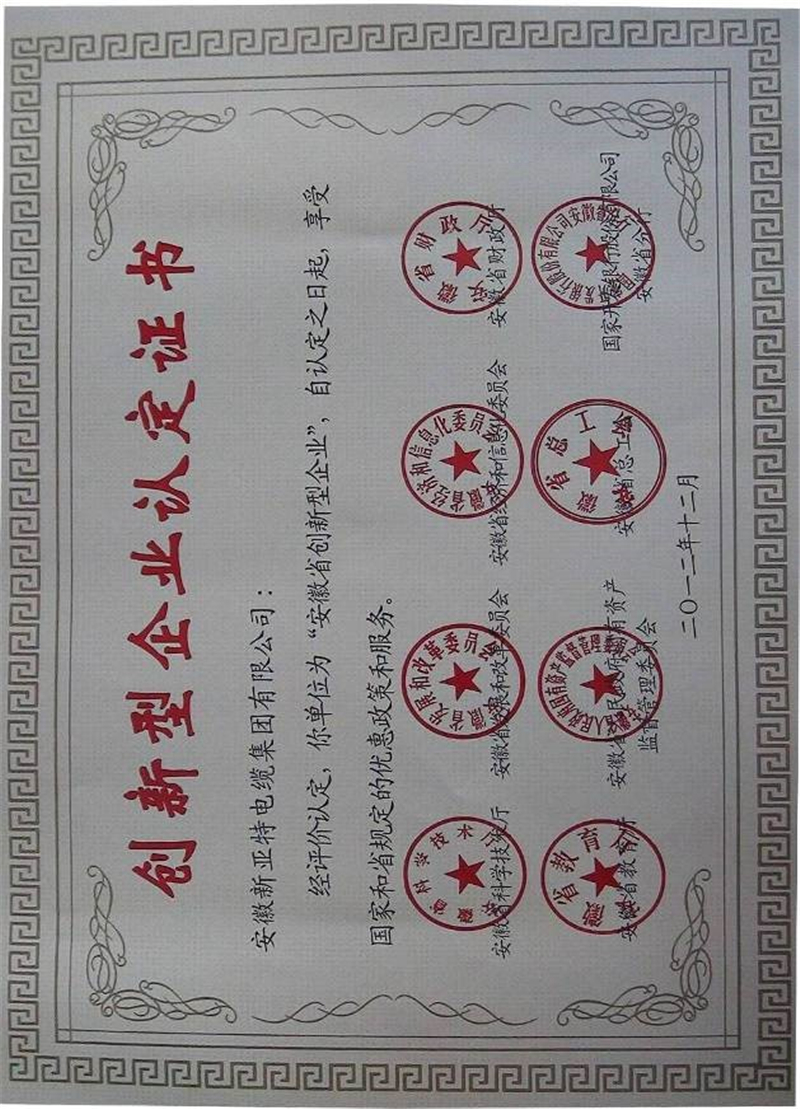 创新型企业认定证书
安徽新亚特电缆集团有限公司：
经评价认定，你单位为“安徽省创新型企业”，自认定之日起，享受
国家和省规定的优惠政策和服务。
安徽省科学技术厅
安徽省发展和改革委员会
安徽省经济和信息化委员会
安徽省财政厅
安徽省教育厅
安徽省人民政府国有资产
监督管理委员会
安徽省总工会
国家开发银行股份有限公司
安徽省分行
二〇一二年十二月